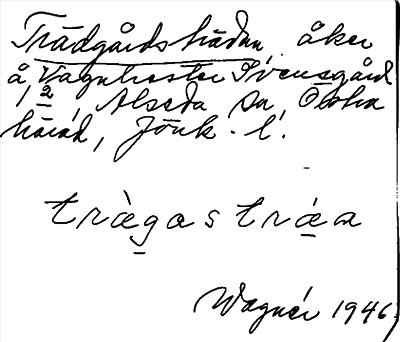 Trädgårdsträdan, åker
å Vagnhester Svensgård
1/2, Alseda sn, Östra
härad, Jönk. l.
trà̠gastrá̠a
Wagnér 1946